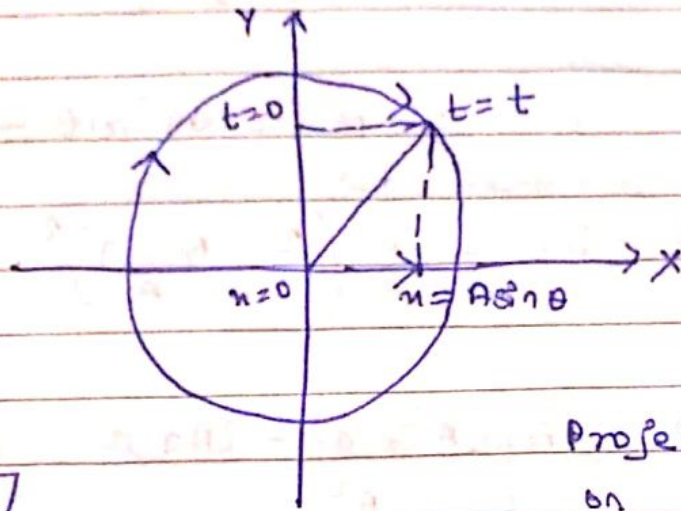 Y
t=0
t= t
X
x=0
x= Asinθ
Proje
on